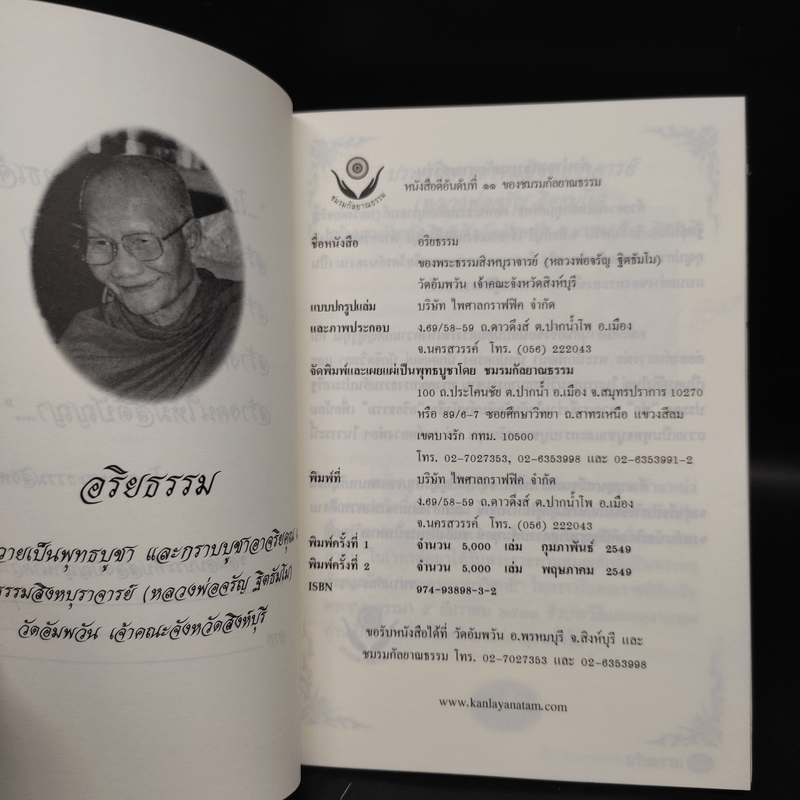 อริยธรรม
วายเป็นพุทธบูชา และกราบบูชาอาจริยคุณ
ธรรมสิงหบุราจารย์ (หลวงพ่อจรัญ ฐิตธัมโม)
วัดอัมพวัน เจ้าคณะจังหวัดสิงห์บุรี
ชมรมกัลยาณธรรม
หนังสือดีอันดับที่ ๑๑ ของชมรมกัลยาณธรรม
ชื่อหนังสือ อริยธรรม
ของพระธรรมสิงหบุราจารย์ (หลวงพ่อจรัญ ฐิตธัมโม)
วัดอัมพวัน เจ้าคณะจังหวัดสิงห์บุรี
แบบปกรูปแล่ม บริษัท ไพศาลกราฟฟิค จำกัด
และภาพประกอบ ง.69/58-59 ถ.ดาวดึงส์ ต.ปากน้ำโพ อ.เมือง
จ.นครสวรรค์ โทร. (056) 222043
จัดพิมพ์และเผยแผ่เป็นพุทธบูชาโดย ชมรมกัลยาณธรรม
100 ถ.ประโคนชัย ต.ปากน้ำ อ.เมือง จ.สมุทรปราการ 10270
หรือ 89/6-7 ซอยศึกษาวิทยา ถ.สาทรเหนือ แขวงสีลม
เขตบางรัก กทม. 10500
โทร. 02-7027353, 02-6353998 และ 02-6353991-2
พิมพ์ที่ บริษัท ไพศาลกราฟฟิค จำกัด
ง.69/58-59 ถ.ดาวดึงส์ ต.ปากน้ำโพ อ.เมือง
จ.นครสวรรค์ โทร. (056) 222043
พิมพ์ครั้งที่ 1 จำนวน 5,000 เล่ม กุมภาพันธ์ 2549
พิมพ์ครั้งที่ 2 จำนวน 5,000 เล่ม พฤษภาคม 2549
ISBN 974-93898-3-2
ขอรับหนังสือได้ที่ วัดอัมพวัน อ.พรหมบุรี จ.สิงห์บุรี และ
ชมรมกัลยาณธรรม โทร. 02-7027353 และ 02-6353998
www.kanlayanatam.com